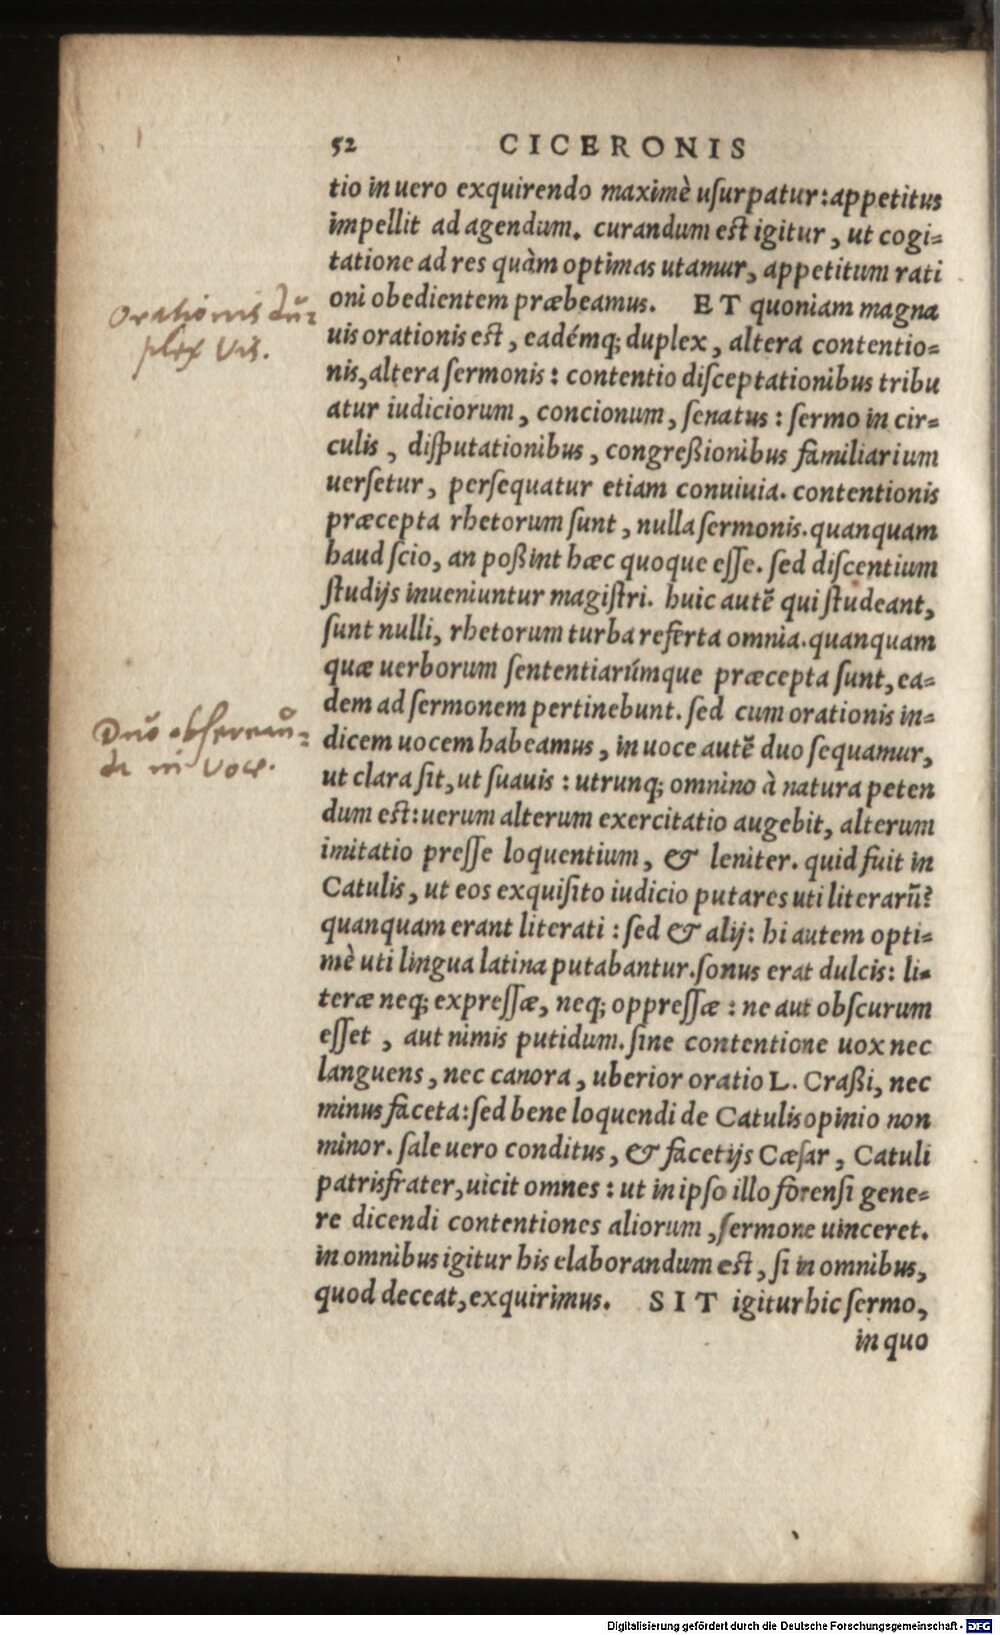 52 CICERONIS
tio in uero exquirendo maximè uſurpatur: appetitus
impellit ad agendum. curandum est igitur, ut cogi-
tatione ad res quàm optimas utamur, appetitum rati
oni obedientem præbeamus. ET quoniam magna
uis orationis est, eadémq; duplex, altera contentio-
nis, altera ſermonis: contentio diſceptationibus tribu
atur iudiciorum, concionum, ſenatus: ſermo in cir-
culis, diſputationibus, congreßionibus familiarium
uerſetur, perſequatur etiam conuiuia. contentionis
præcepta rhetorum ſunt, nulla ſermonis. quanquam
haud ſcio, an poßint hæc quoque eſſe. ſed diſcentium
ſtudijs inueniuntur magiſtri. huic autẽ qui ſtudeant,
ſunt nulli, rhetorum turba referta omnia. quanquam
quæ uerborum ſententiarúmque præcepta ſunt, ea-
dem ad ſermonem pertinebunt. ſed cum orationis in-
dicem uocem habeamus, in uoce autẽ duo ſequamur,
ut clara ſit, ut ſuauis: utrunq; omnino à natura peten
dum est: uerum alterum exercitatio augebit, alterum
imitatio preſſe loquentium, & leniter. quid fuit in
Catulis, ut eos exquiſito iudicio putares uti literarũ?
quanquam erant literati: ſed & alij: hi autem opti-
mè uti lingua latina putabantur. ſonus erat dulcis: li-
teræ neq; expreſſæ, neq; oppreſſæ: ne aut obſcurum
eſſet, aut nimis putidum. ſine contentione uox nec
languens, nec canora, uberior oratio L. Craßi, nec
minus faceta: ſed bene loquendi de Catulis opinio non
minor. ſale uero conditus, & facetijs Cæſar, Catuli
patris frater, uicit omnes: ut in ipſo illo forenſi gene-
re dicendi contentiones aliorum, ſermone uinceret.
in omnibus igitur his elaborandum est, ſi in omnibus,
quod deceat, exquirimus. SIT igitur hic ſermo,
in quo
Orationis du-
plex vis.
Duo obseruan-
da in voce.
Digitalisierung gefördert durch die Deutsche Forschungsgemeinschaft - DFG